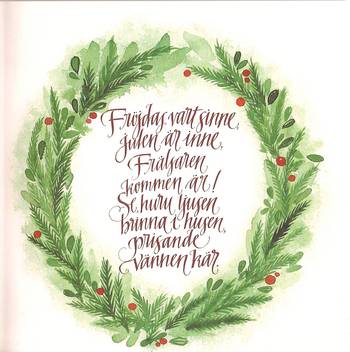 Fröjdas vart sinne,
julen är inne,
Frälsaren
kommen är!
Se, huru ljusen
brinna i husen,
prisande
vännen kär.